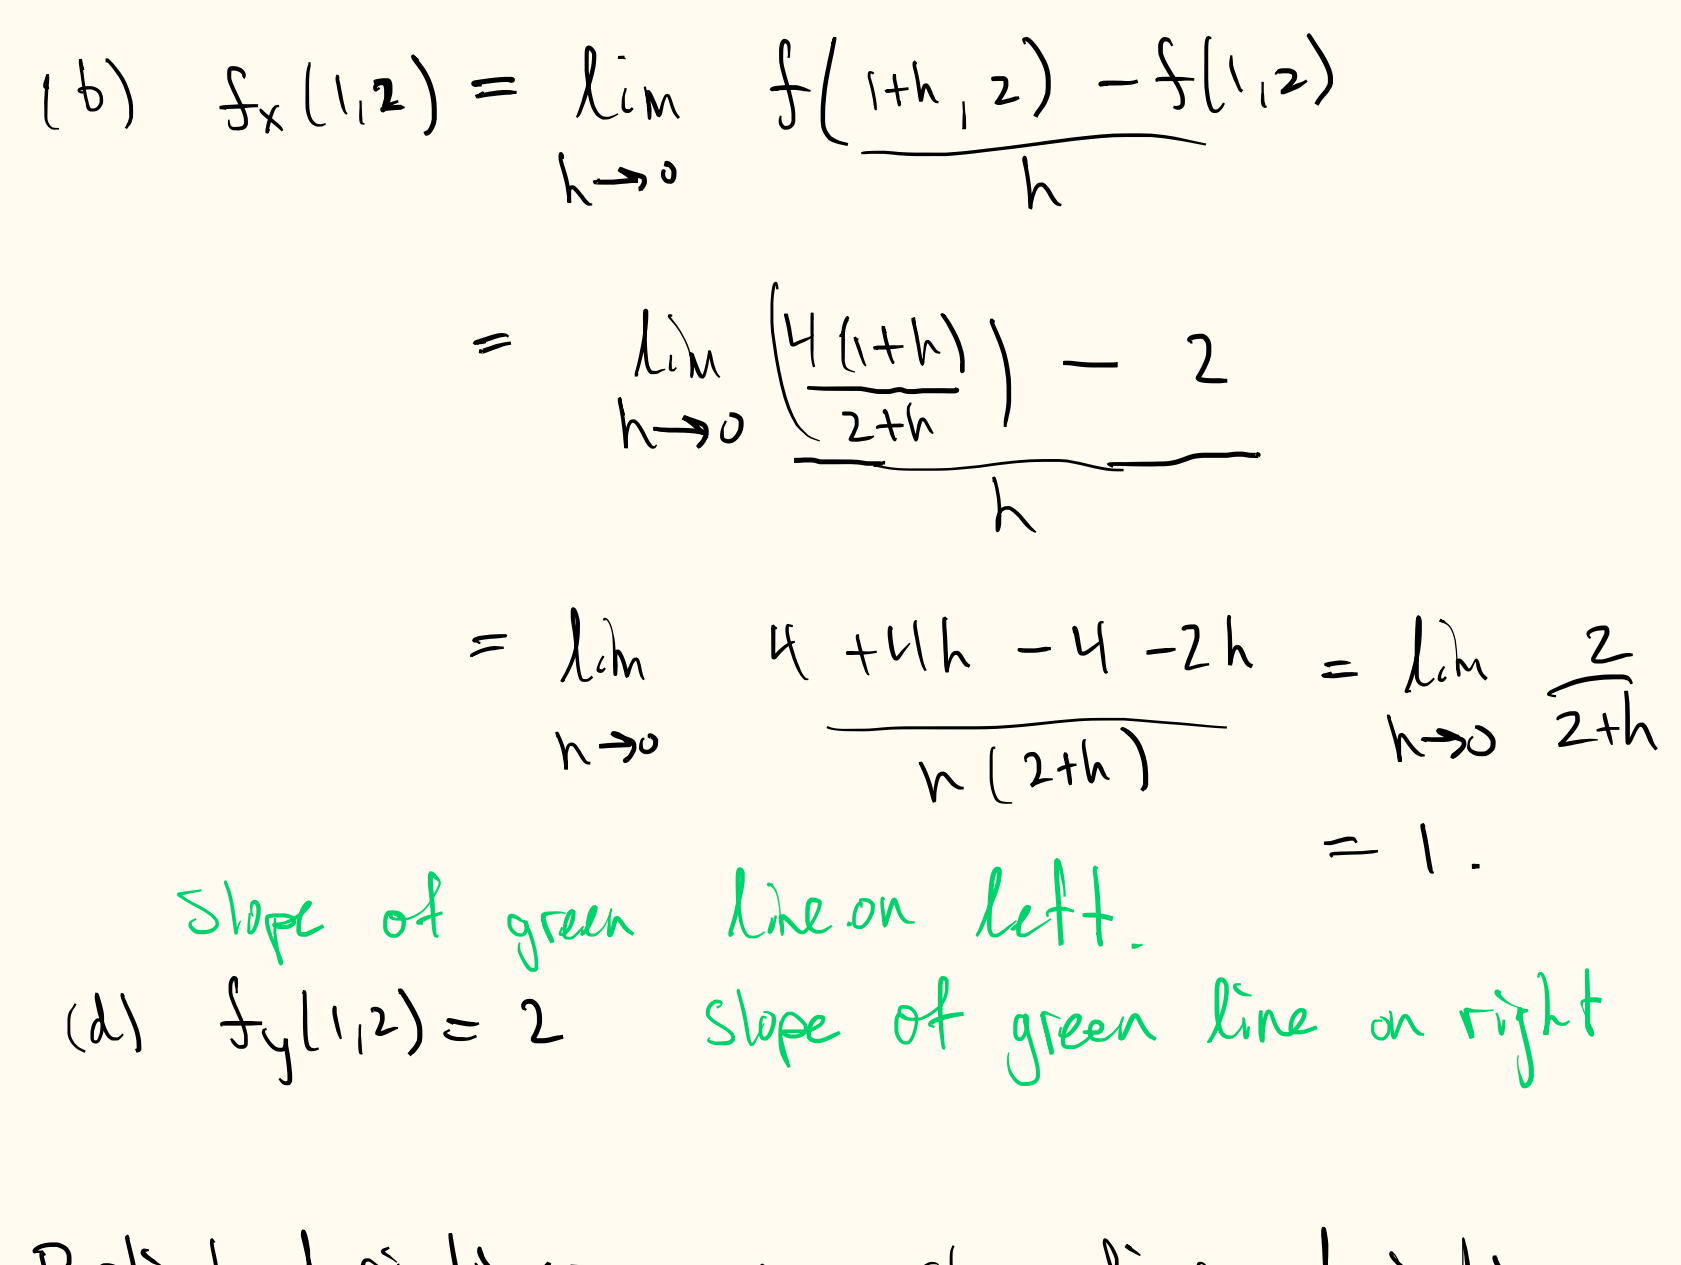 (b) fx(1,2) = lim h→0 f(1+h, 2) - f(1,2) / h
= lim h→0 (4(1+h) / 2+h) - 2 / h
= lim h→0 4 + 4h - 4 - 2h / h(2+h) = lim h→0 2 / 2+h
= 1.
slope of green line on left.
(d) fy(1,2) = 2 slope of green line on right